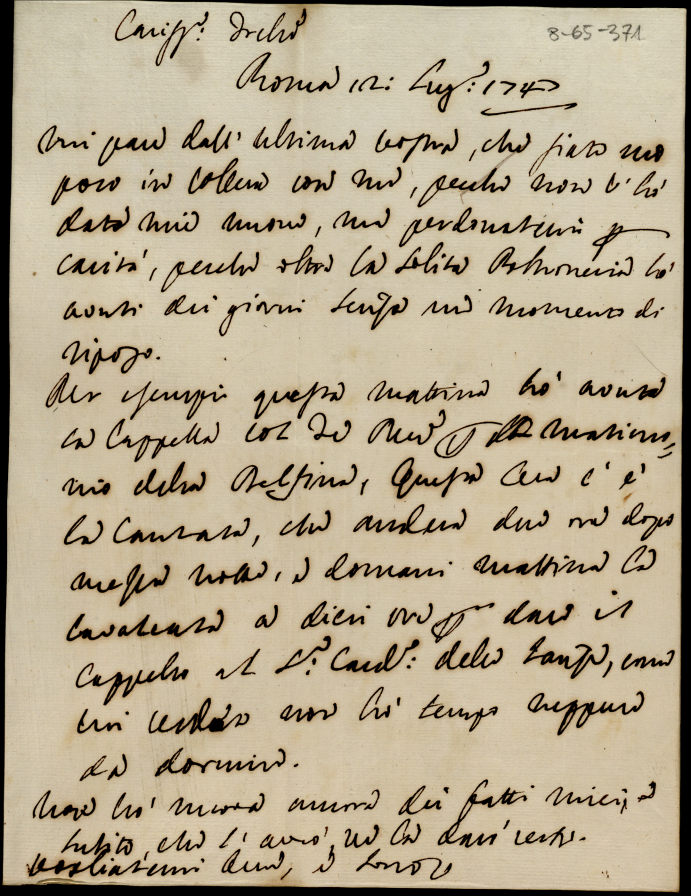 8-65-371
Cariss.º
Roma 12: Lug.º 1747
mi pare dall' ultima vostra, che siate un
poco in collera con me, perche non v'hò
dato mie nuove, ma perdonatemi p
carità, perche oltre la solita Poltroneria hò
avuti dei giorni senza un momento di
riposo.
Per esempio questa mattina hò avuta
la Cappella col Te Deu p matrimo=
nio della Delfina, Questa sera c'è
la Cantata, che anderà due ore dopo
mezza notte, e domani mattina la
Cavalcata a dieci ore p dare il
Cappello al S.r Card.l delle Lanze, come
voi vedete non hò tempo neppure
da dormire.
Non hò nuova ancora dei fatti miei, e
subito, che l'avrò, ve la darò
vogliatemi bene, e sono